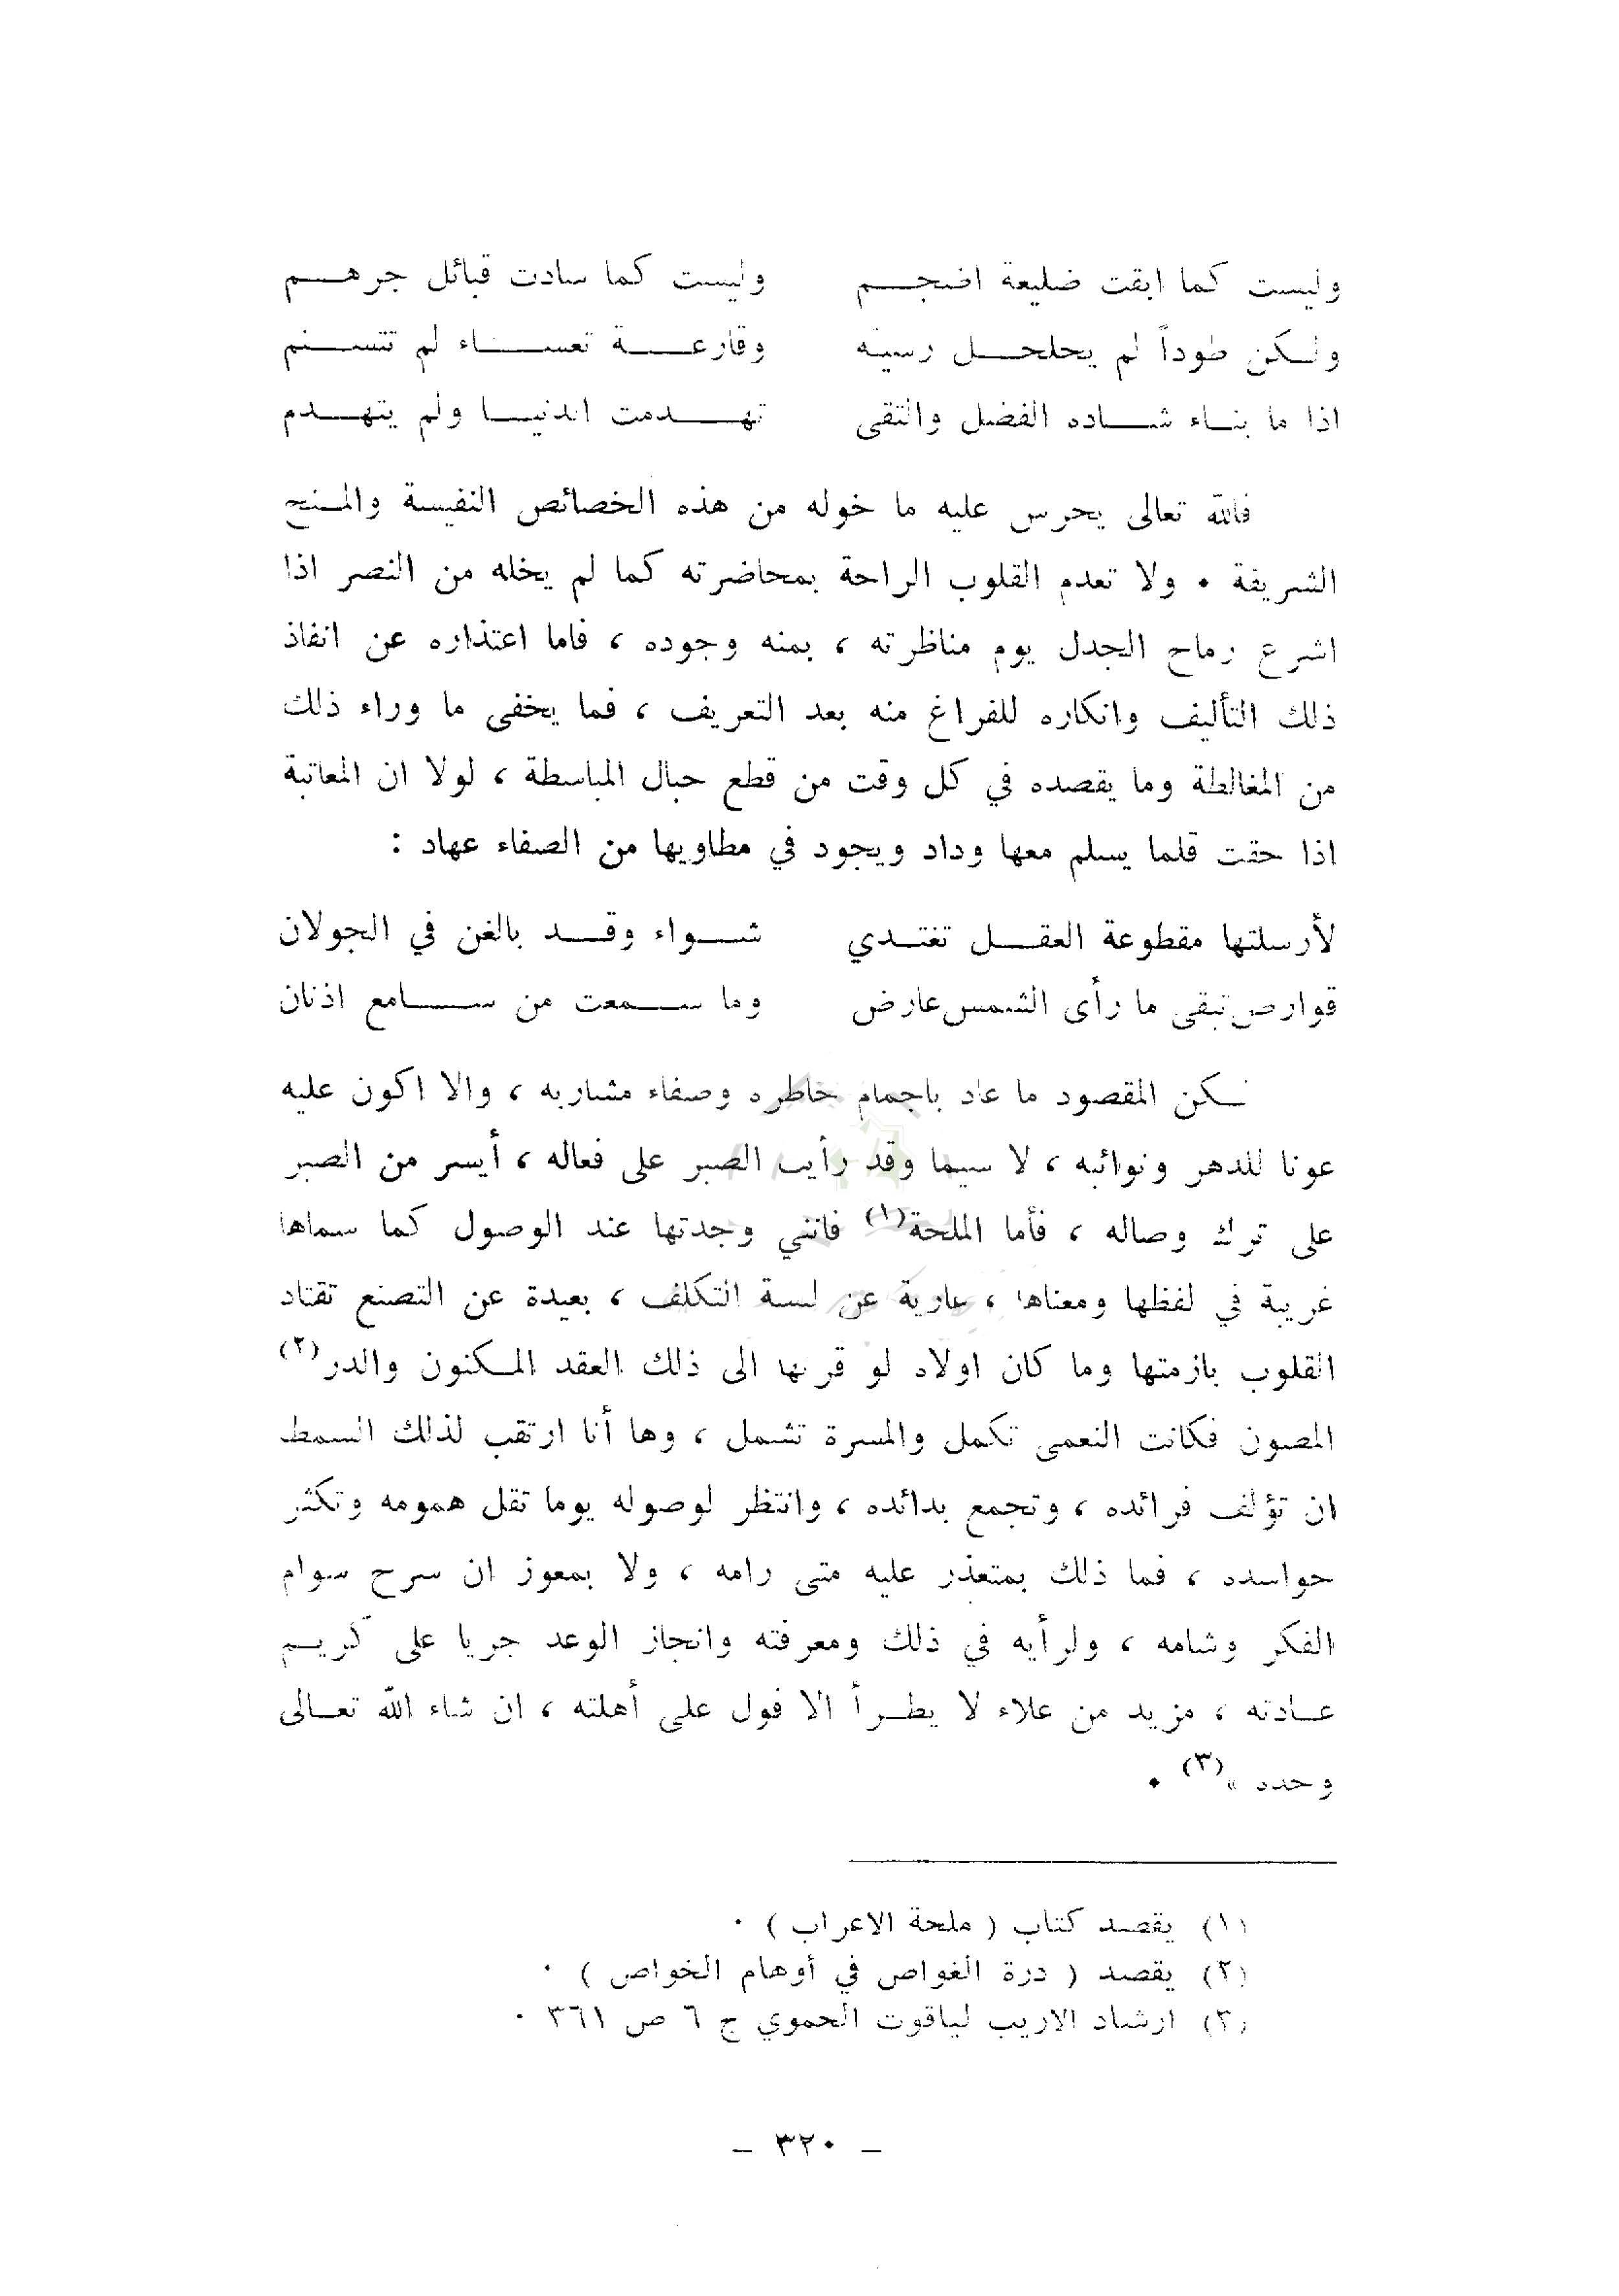 وليست كما ابقت ضليعة اضجم وليست كما سادت قبائل جرهم
ولكن طوداً لم يحلحل رسيه وقارعة تعساء لم تتسنم
اذا ما بناء شاده الفضل والتقى تهدمت الدنيا ولم يتهدم
فالله تعالى يحرس عليه ما خوله من هذه الخصائص النفيسة والمنح
الشريفة . ولا تعدم القلوب الراحة بمحاضرته كما لم يخله من النصر اذا
اشرع رماح الجدل يوم مناظرته ، بمنه وجوده ، فاما اعتذاره عن انفاذ
ذلك التأليف وانكاره للفراغ منه بعد التعريف ، فما يخفى ما وراء ذلك
من المغالطة وما يقصده في كل وقت من قطع حبال المباسطة ، لولا ان المعاتبة
اذا حقت قلما يسلم معها وداد ويجود في مطاويها من الصفاء عهاد :
لأرسلتها مقطوعة العقل تغتدي شواء وقد بالغن في الجولان
قوارص تبقى ما رأى الشمس عارض وما سمعت من سامع اذنان
لكن المقصود ما عاد باجمام خاطره وصفاء مشاربه ، والا اكون عليه
عونا للدهر ونوائبه ، لا سيما وقد رأيت الصبر على فعاله ، أيسر من الصبر
على ترك وصاله ، فأما الملحة(١) فانني وجدتها عند الوصول كما سماها
غريبة في لفظها ومعناها ، عارية عن لبسة التكلف ، بعيدة عن التصنع تقتاد
القلوب بازمتها وما كان اولاه لو قرنها الى ذلك العقد المكنون والدر(٢)
المصون فكانت النعمى تكمل والمسرة تشمل ، وها أنا ارتقب لذلك السمط
ان تؤلف فرائده ، وتجمع بدائده ، وانتظر لوصوله يوما تقل همومه وتكثر
حواسده ، فما ذلك بمتعذر عليه متى رامه ، ولا بمعوز ان سرح سوام
الفكر وشامه ، ولرأيه في ذلك ومعرفته وانجاز الوعد جريا على كريم
عادته ، مزيد من علاء لا يطرأ الا فول على أهلته ، ان شاء الله تعالى
وحده »(٣) .
(١) يقصد كتاب ( ملحة الاعراب ) .
(٢) يقصد ( درة الغواص في أوهام الخواص ) .
(٣) ارشاد الاريب لياقوت الحموي ج ٦ ص ٣٦١ .
– ٣٢٠ –